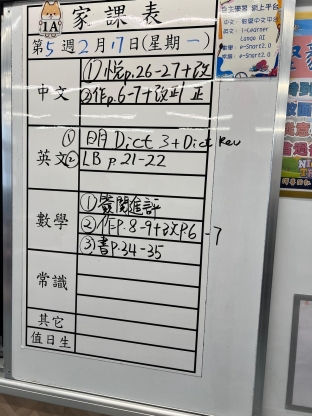 1A 家課表
第5週2月17日(星期一)
中文
①悅p.26-27+改
②作p.6-7+改訂正
英文
①明 Dict 3 + Dict Rev
②LB p.21-22
數學
①發閱進評
②作p.8-9+改p.6-7
③書p.34-35
常識
其它
值日生
自主學習 網上平台
i-Learner
e-Smart2.0
e-Smart2.0